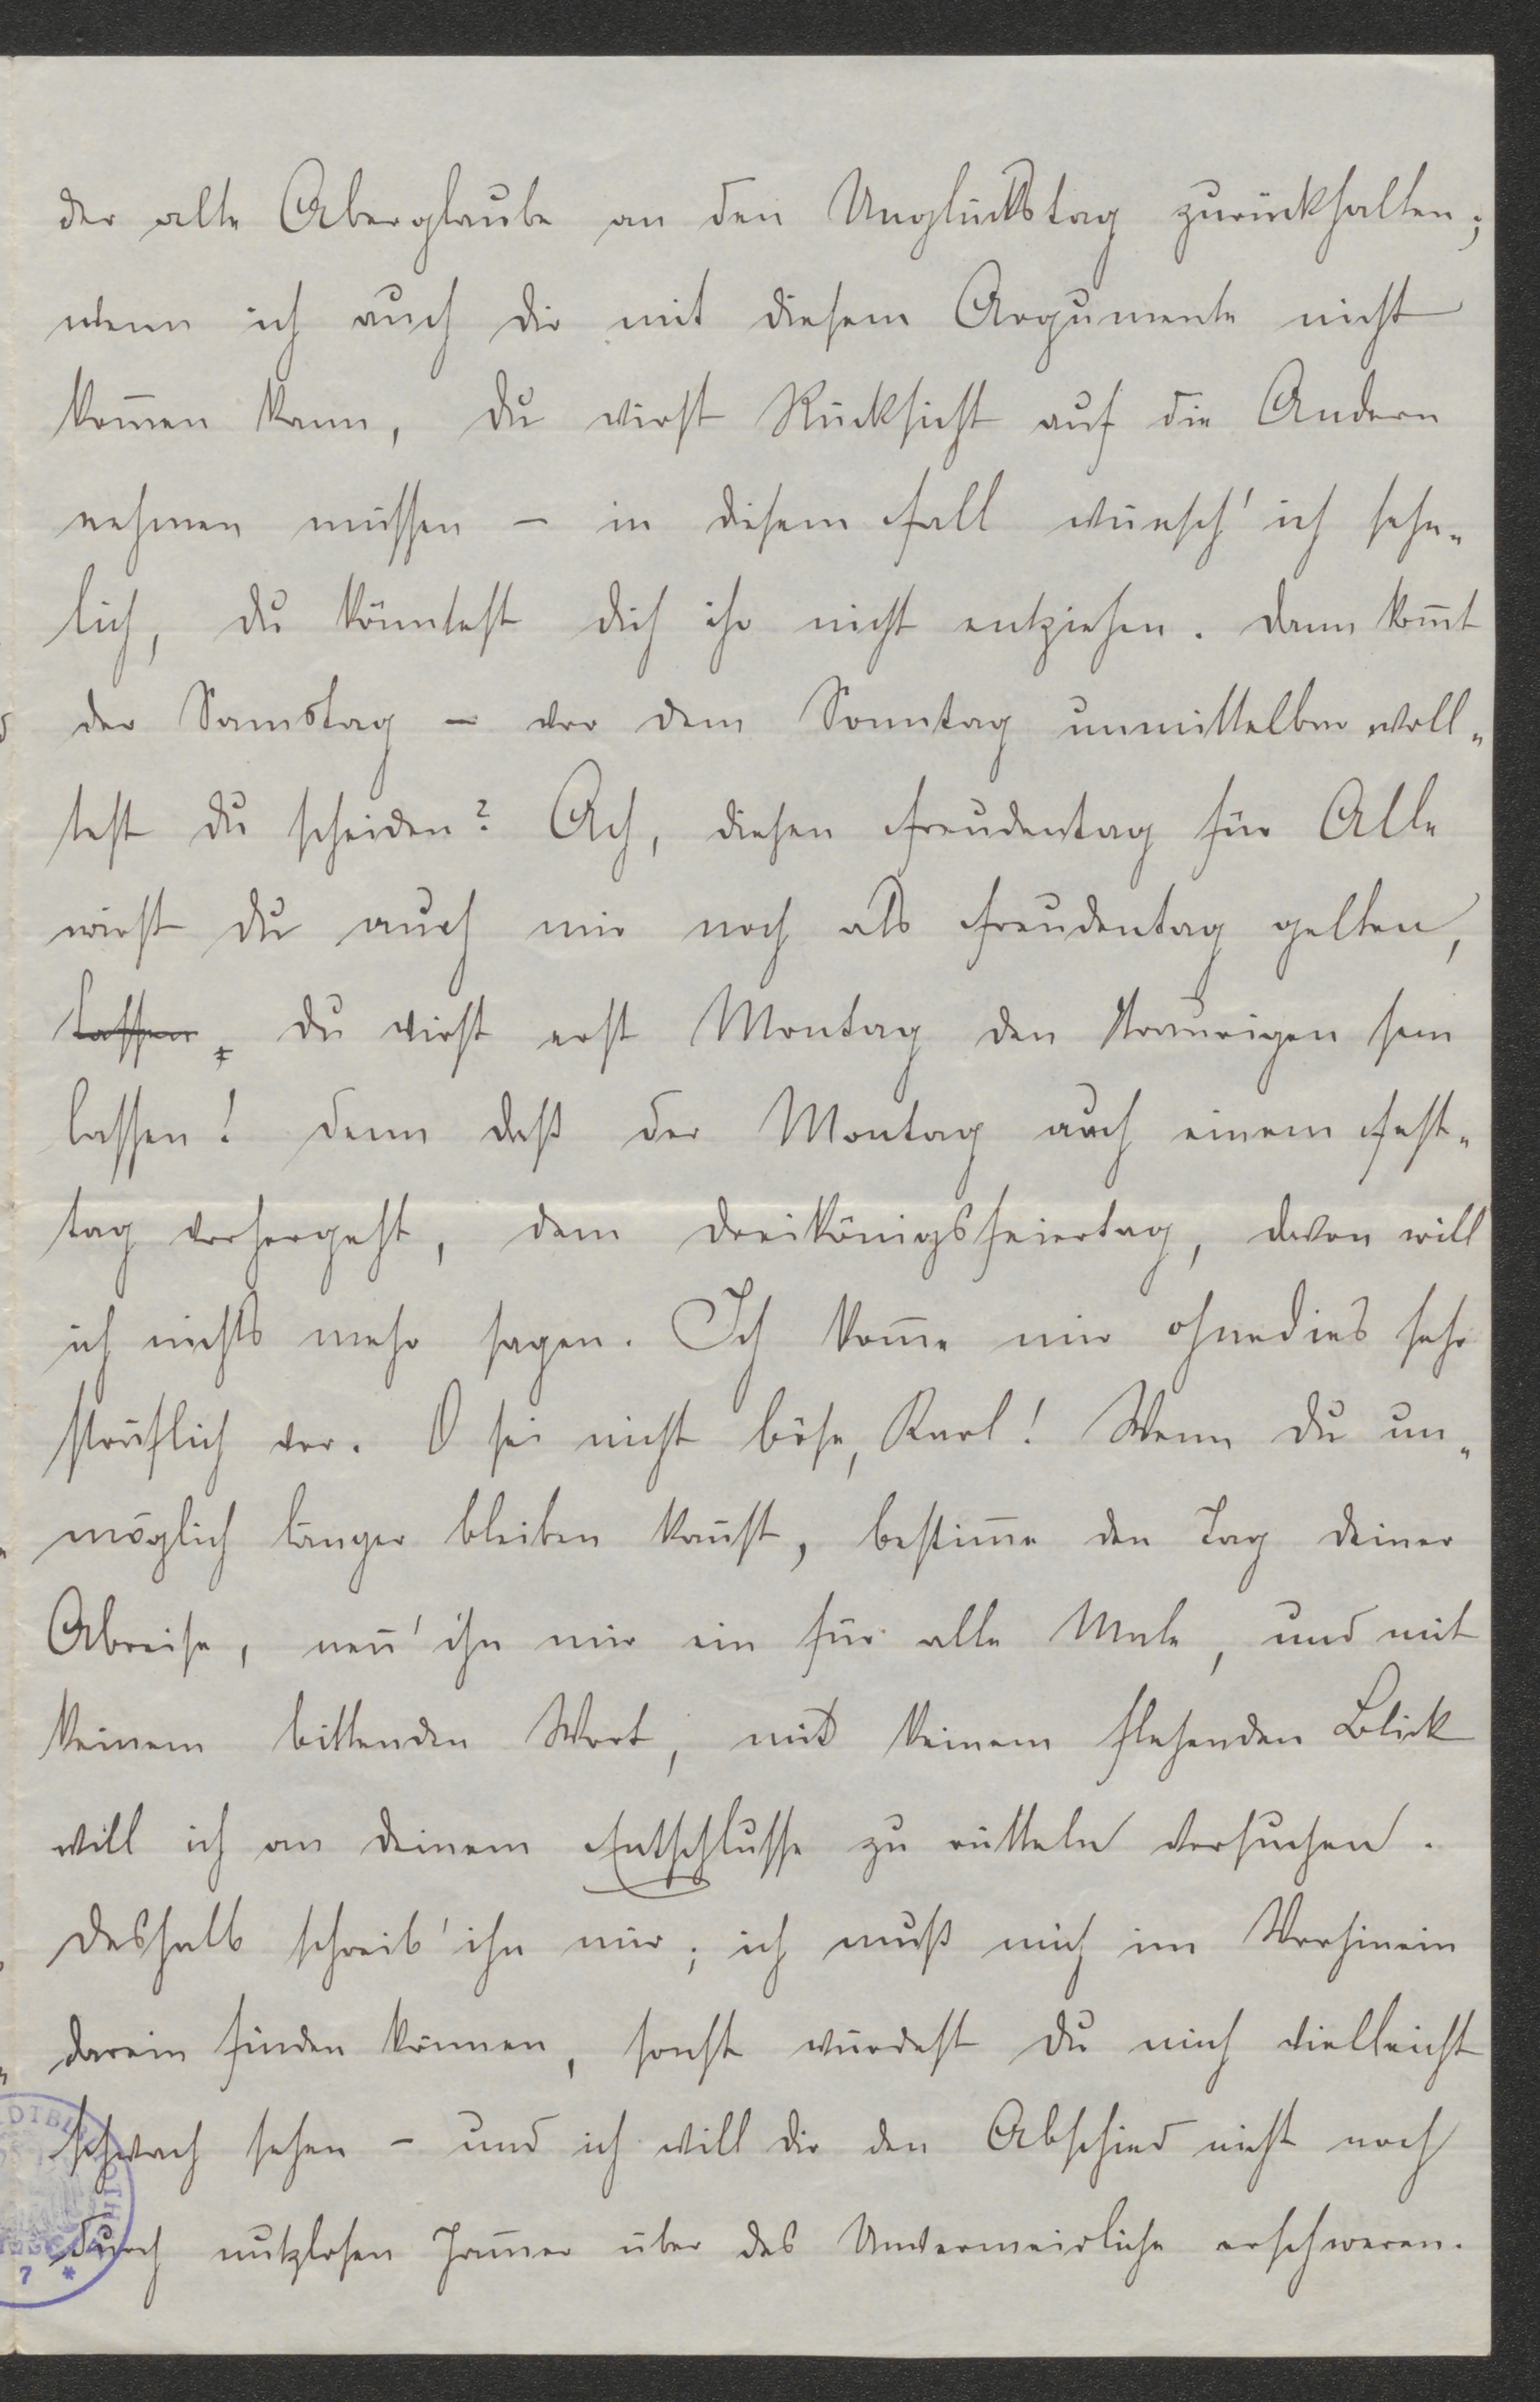 der alte Aberglaube an den Unglückstag zurückhalten;
wenn ich auch dir mit diesem Argumente nicht
kom̅en kann, du wirst Rücksicht auf die Andern
nehmen müssen – in diesem Fall wünsch' ich sehn„
lich, du könntest dich ihr nicht entziehen. Dann kom̅t
der Samstag – vor dem Sonntag unmittelbar woll„
test du scheiden? Ach, diesen Freudentag für Alle
wirst du auch mir noch als Freudentag gelten,
lassen, du wirst erst Montag den traurigen sein
lassen! Denn daß der Montag auch einem Fest„
tag vorhergeht, dem Dreikönigsfeiertag, davon will
ich nichts mehr sagen. Ich kom̅e mir ohnedies sehr
sträflich vor. O sei nicht böse, Karl! Wenn du un„
möglich länger bleiben kan̅st, bestim̅e den Tag deiner
Abreise, nen̅' ihn mir ein für alle Male, und mit
keinem bittenden Wort, mit keinem flehenden Blick
will ich an deinem Entschlusse zu rütteln versuchen.
Deshalb schreib' ihn mir; ich muß mich im Vorhinein
darein finden können, sonst würdest du mich vielleicht
schwach sehen – und ich will dir den Abschied nicht noch
durch nutzlosen Jam̅er über das Unvermeidliche erschweren.
7 *